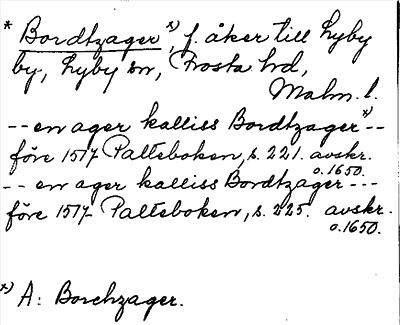 * Bordtzager *), f. åker till Hyby
by, Hyby sn, Frosta hd,
Malm. l.
-- en ager kalliss Bordtzager *) --
före 1517 Palteboken, s. 221. avskr.
o. 1650.
-- en ager kalliss Bordtzager ---
före 1517 Palteboken, s. 225. avskr.
o. 1650.
*) A: Borchzager.